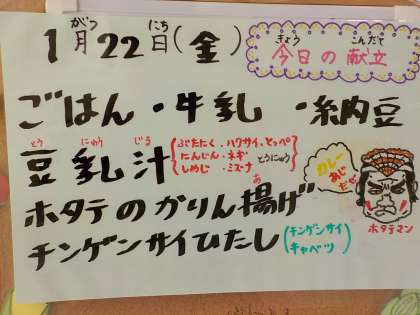 1月22日(金)
がつ にち
きょう こんだて
今日の献立
ごはん・牛乳・納豆
とう にゅう じる
豆乳汁
ぶたにく・ハクサイ・とっぺ
にんじん・ネギ とうにゅう
しめじ・ミズナ
あ
ホタテのかりん揚げ
カレー
あじ
だぜ
ホタテマン
チンゲンサイひたし
チンゲンサイ
キャベツ